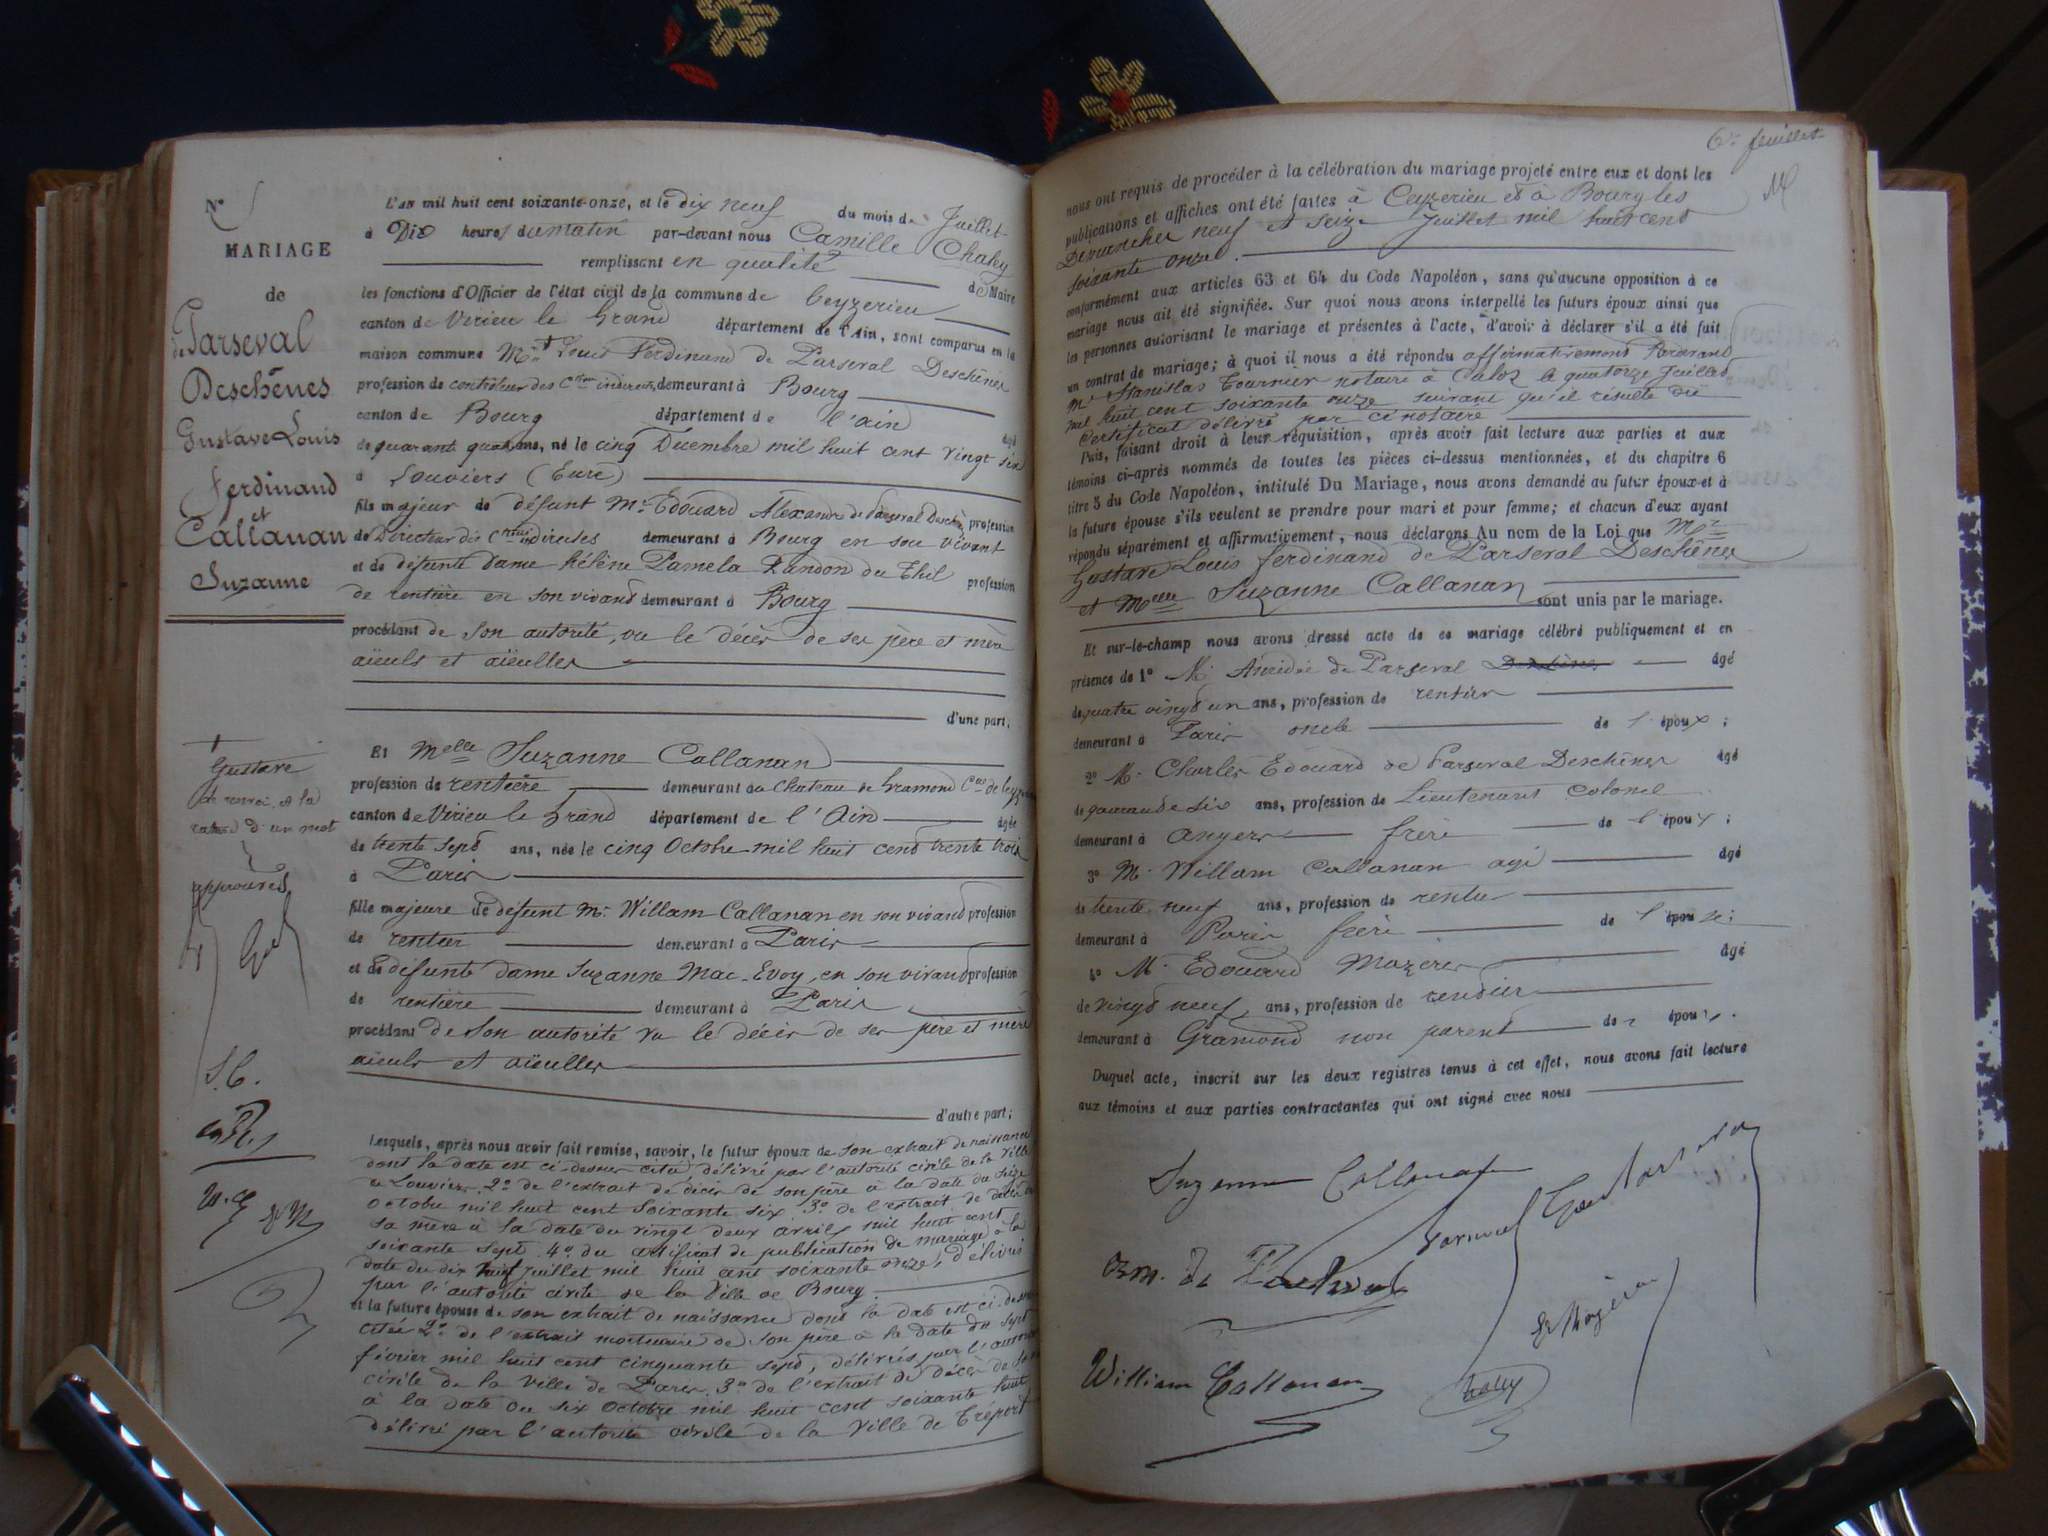 N°
MARIAGE
de
de Parseval
Deschênes
Gustave Louis
Ferdinand
et
Callanan
Suzanne
L'an mil huit cent soixante-onze, et le dix neuf du mois de Juillet
à Dix heures du matin par-devant nous Camille Chaley
remplissant en qualité de Maire
les fonctions d'Officier de l'état civil de la commune de Ceyzerieu
canton de Virieu le Grand département de l'Ain, sont comparus en la
maison commune Mr Louis Ferdinand de Parseval Deschênes
profession de contrôleur des Ctions indirectes, demeurant à Bourg
canton de Bourg département de l'ain âgé
de quarante quatre ans, né le cinq Décembre mil huit cent vingt six
à Louviers (Eure)
fils majeur de défunt Mr Edouard Alexandre de Parseval Deschênes profession
de Directeur des Ctions indirectes demeurant à Bourg en son vivant
et de défunte dame hélène Pamela Randon du Thil profession
de rentière en son vivant demeurant à Bourg
procédant de son autorité, vu le décès de ses père et mère
aïeuls et aïeulles
d'une part;
† Gustave
de renvoi et la
rature d'un mot
approuvés
Et Melle Suzanne Callanan
profession de rentière demeurant au Chateau de Gramond Cne de Ceyzerieu
canton de Virieu le Grand département de l'Ain âgée
de trente sept ans, née le cinq Octobre mil huit cent trente trois
à Paris
fille majeure de défunt Mr Willam Callanan en son vivant profession
de rentier demeurant à Paris
et de défunte dame Suzanne Mac-Evoy, en son vivant profession
de rentière demeurant à Paris
procédant de son autorité vu le décès de ses père et mère
aïeuls et aïeulles
d'autre part;
S.C.
Lesquels, après nous avoir fait remise, savoir, le futur époux de son extrait de naissance
dont la date est ci-dessus citée, délivré par l'autorité civile de la ville
de Louviers 2° de l'extrait de décès de son père à la date du seize
Octobre mil huit cent soixante six 3° de l'extrait de décès de
sa mère à la date du vingt deux avril mil huit cent
soixante sept 4° du certificat de publication de mariage à la
date du dix huit juillet mil huit cent soixante onze, délivrés
par l'autorité civile de la Ville de Bourg.
et la future épouse de son extrait de naissance dont la date est ci-dessus
citée 2° de l'extrait mortuaire de son père à la date du sept
février mil huit cent cinquante sept, délivrés par l'autorité
civile de la ville de Paris 3° de l'extrait de décès de sa
à la date du six octobre mil huit cent soixante huit
délivré par l'autorité civile de la Ville de Tréport
6e feuillet
nous ont requis de procéder à la célébration du mariage projeté entre eux et dont les
publications et affiches ont été faites à Ceyzerieu et à Bourg les
Dimanches neuf et seize Juillet mil huit cent
soixante onze.
conformément aux articles 63 et 64 du Code Napoléon, sans qu'aucune opposition à ce
mariage nous ait été signifiée. Sur quoi nous avons interpellé les futurs époux ainsi que
les personnes autorisant le mariage et présentes à l'acte, d'avoir à déclarer s'il a été fait
un contrat de mariage; à quoi il nous a été répondu affirmativement pardevant
Me Stanislas Tournier notaire à Culoz le quatorze Juillet
mil huit cent soixante onze suivant qu'il résulte du
certificat délivré par ce notaire
Puis, faisant droit à leur réquisition, après avoir fait lecture aux parties et aux
témoins ci-après nommés de toutes les pièces ci-dessus mentionnées, et du chapitre 6
titre 5 du Code Napoléon, intitulé Du Mariage, nous avons demandé au futur époux et à
la future épouse s'ils veulent se prendre pour mari et pour femme; et chacun d'eux ayant
répondu séparément et affirmativement, nous déclarons Au nom de la Loi que Mr
Gustave Louis Ferdinand de Parseval Deschênes
et Melle Suzanne Callanan sont unis par le mariage.
Et sur-le-champ nous avons dressé acte de ce mariage célébré publiquement et en
présence de 1° M. de Parseval Deschênes âgé
de quatre vingt un ans, profession de rentier
demeurant à Paris oncle de l'époux;
2° M. Charles Edouard de Parseval Deschênes âgé
de quarante six ans, profession de Lieutenant Colonel
demeurant à Angers frère de l'époux;
3° M. Willam Callanan agé âgé
de trente neuf ans, profession de rentier
demeurant à Paris frère de l'épouse;
4° M. Edouard Mazères âgé
de vingt neuf ans, profession de rentier
demeurant à Gramond non parent des époux.
Duquel acte, inscrit sur les deux registres tenus à cet effet, nous avons fait lecture
aux témoins et aux parties contractantes qui ont signé avec nous
Suzanne Callanan
de Parseval
William Callanan
Chaley